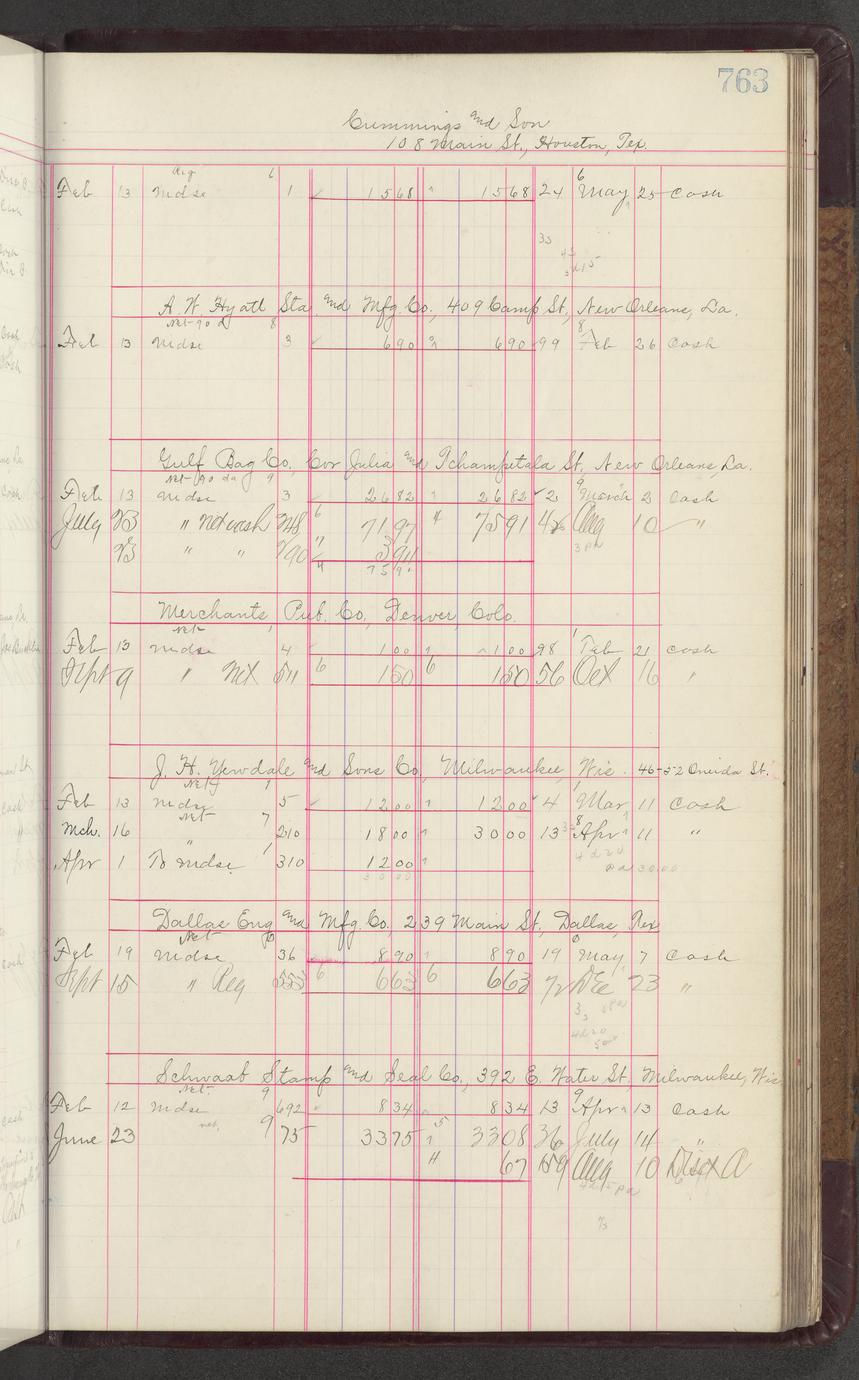 763
Cummings and Son
108 Main St., Houston, Tex.
Reg 6 6
Feb 13 Mdse 1 1568 1568 24 May 25 Cash
33
A. W. Hyatt Sta. and Mfg. Co., 409 Camp St., New Orleans, La.
Net 90 d 8 8
Feb 13 Mdse 3 690 690 99 Feb 26 Cash
Gulf Bag Co., Cor Julia and Tchampitala St., New Orleans, La.
Net 90 da 9 9
Feb 13 Mdse 3 2682 2682 2 March 2 Cash
July 23 " Net cash 248 6 7197 4 7591 Aug 10 "
23 " " 290 394
759
Merchants Pub. Co., Denver Colo.
Net 1 1
Feb 13 Mdse 4 100 100 98 Feb 21 Cash
Sept 9 " Net 511 6 150 6 150 56 Oct 16 "
J. H. Yewdale and Sons Co., Milwaukee, Wis. 46-52 Oneida St.
Net 1 1
Feb 13 Mdse 5 1200 1200 4 Mar 11 Cash
Net 7 8
Mch. 16 " 210 1800 3000 13 Apr 11 "
Apr 1 To Mdse 1 310 1200
3000
Dallas Eng and Mfg. Co., 239 Main St., Dallas, Tex
Net
Feb 19 Mdse 36 890 890 19 May 7 Cash
Sept 15 " Reg 553 6 663 6 663 72 Dec 23 "
Schwaab Stamp and Seal Co., 392 E. Water St., Milwaukee, Wis
Net 9 9
Feb 12 Mdse 692 834 834 13 Apr 13 Cash
June 23 net 9 75 3375 5 3308 36 July 14 "
4 67 159 Aug 10 Disct A